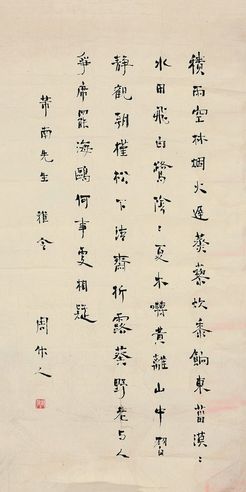 積雨空林烟火遲蒸藜炊黍餉東菑漠〻
水田飛白鷺陰〻夏木囀黃離山中習
靜觀朝槿松下清齋折露葵野老与人
爭席罷海鷗何事更相疑
芾南先生 雅令
周作人